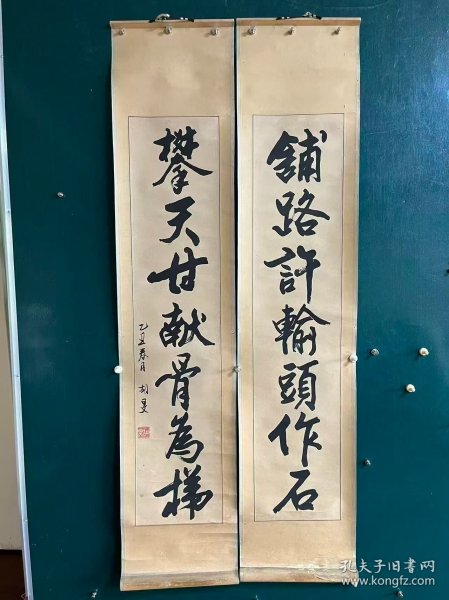 舖路許輸頭作石
攀天甘献骨為梯
乙丑春月 胡旻
孔夫子旧书网
www.kongfz.com